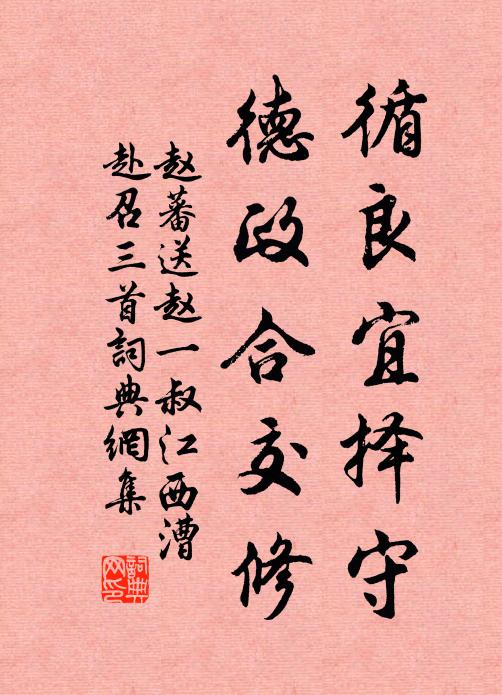 循良宜择守
德政合交修
赵蕃送赵一叔江西漕
赴召三首詞典網集
詞典网印